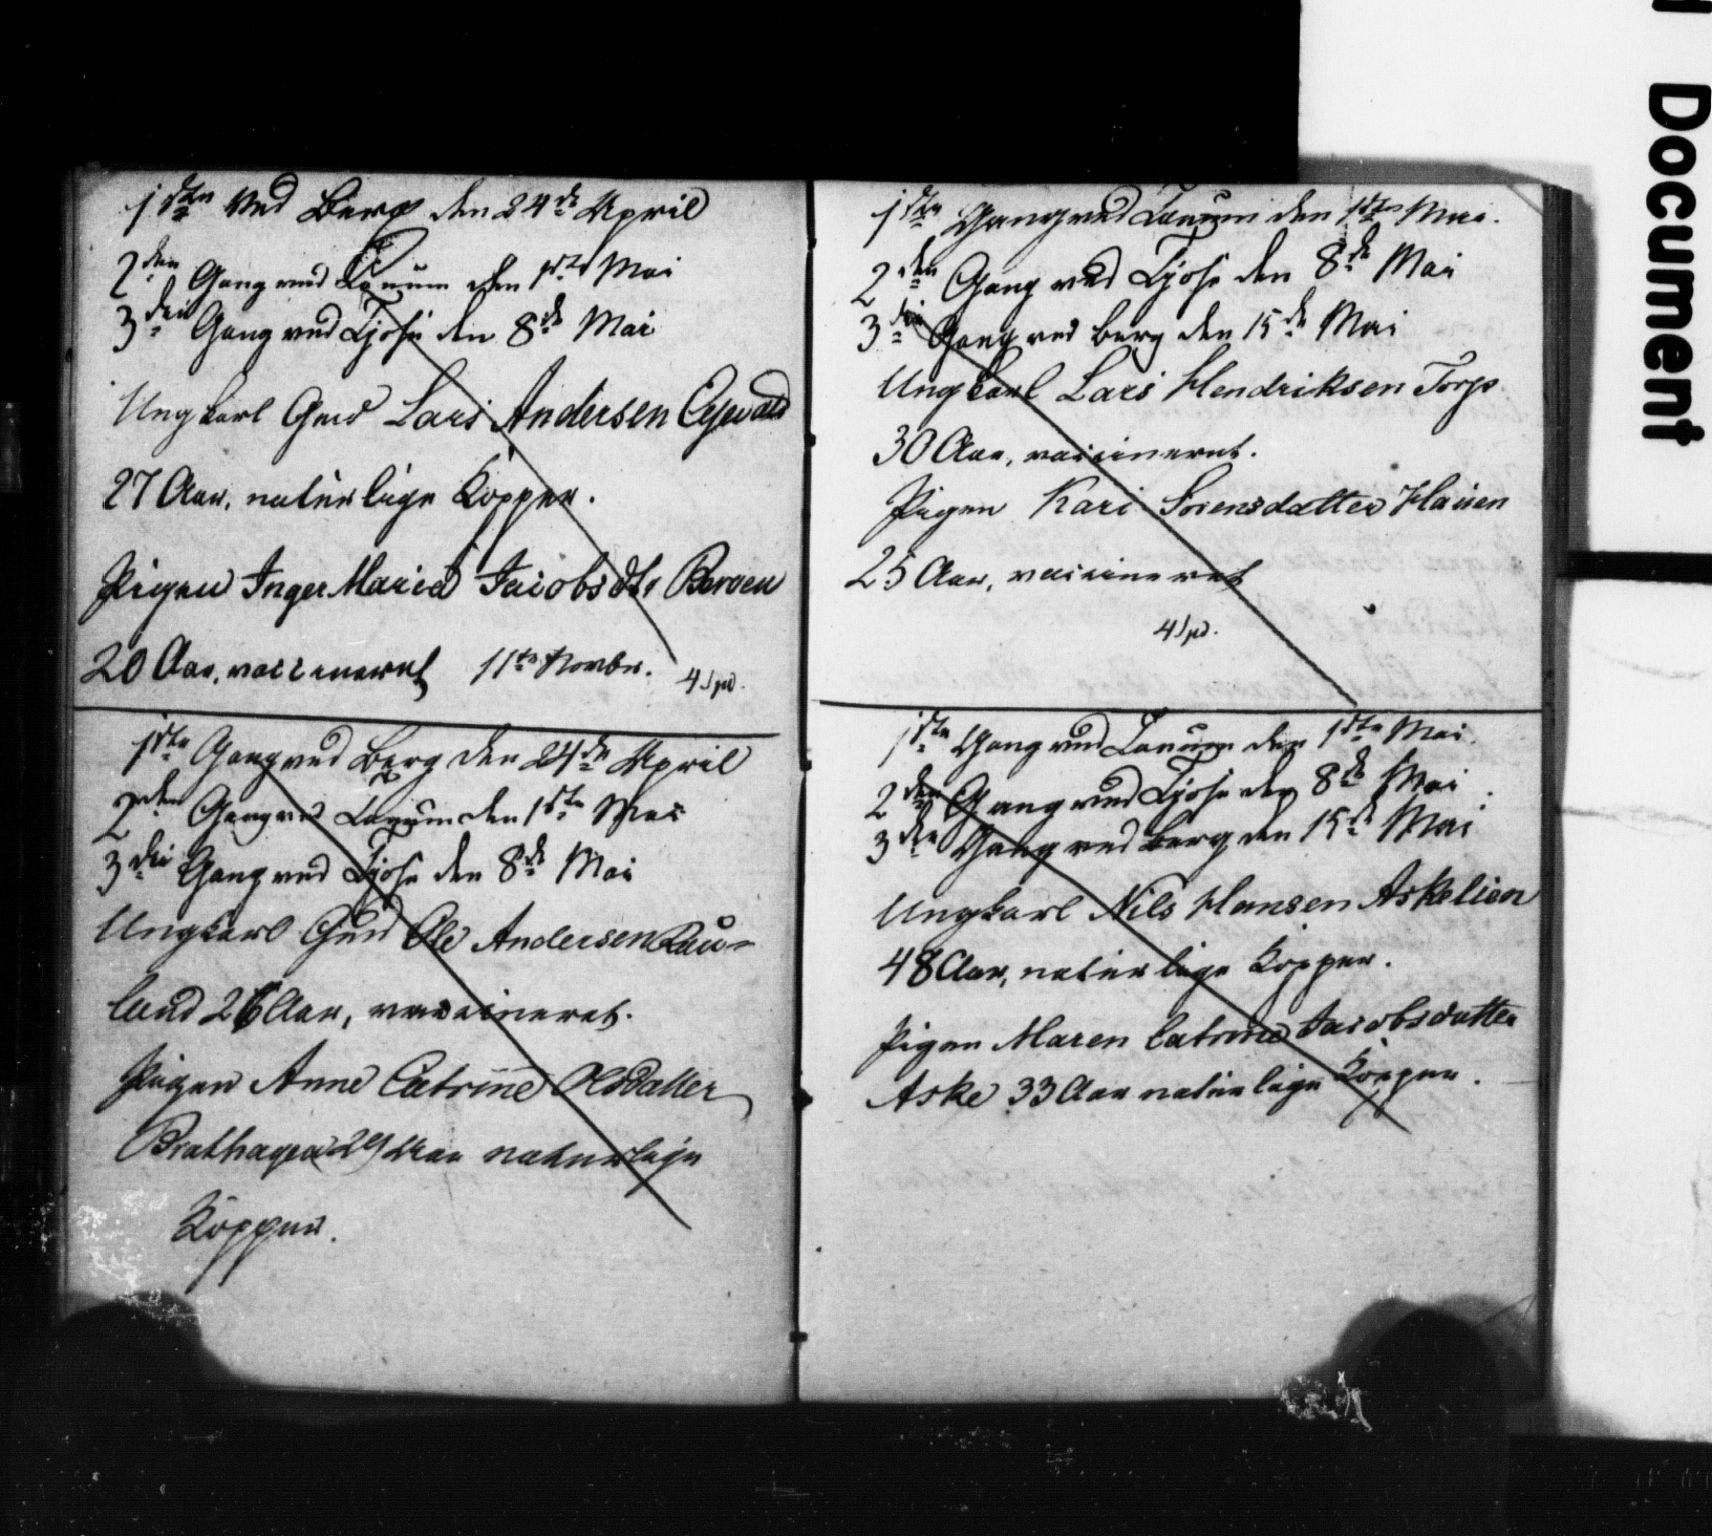 1ste ved Berg den 24de April
2den Gang ved Tanum den 1ste Mai
3die Gang ved Tjose den 8de Mai
Ungkarl Gmd Lars Andersen
27 Aar, naturlige Kopper.
Pigen Inger Maria Jacobsdtr Bergen
20 Aar, vaccineret 11te Novbr. 4 Spd.
1ste Gang ved Berg den 24de April
2den Gang ved Tanum den 1ste Mai
3die Gang ved Tjose den 8de Mai
Ungkarl Gmd Ole Andersen Rau-
land 26 Aar, vaccineret.
Pigen Anne Catrine Olsdatter
Brathagen 29 Aar naturlige
Kopper.
1ste Gang ved Tanum den 1ste Mai.
2den Gang ved Tjose den 8de Mai
3die Gang ved Berg den 15de Mai
Ungkarl Lars Hendriksen Torp
30 Aar, vaccineret.
Pigen Kari Sørensdatter Hauen
25 Aar, vaccineret
4 Spd.
1ste Gang ved Tanum den 1ste Mai.
2den Gang ved Tjose den 8de Mai
3die Gang ved Berg den 15de Mai
Ungkarl Nils Hansen Askelien
48 Aar, naturlige Kopper.
Pigen Maren Catrine Jacobsdatter
Aske 33 Aar naturlige Kopper.
Document